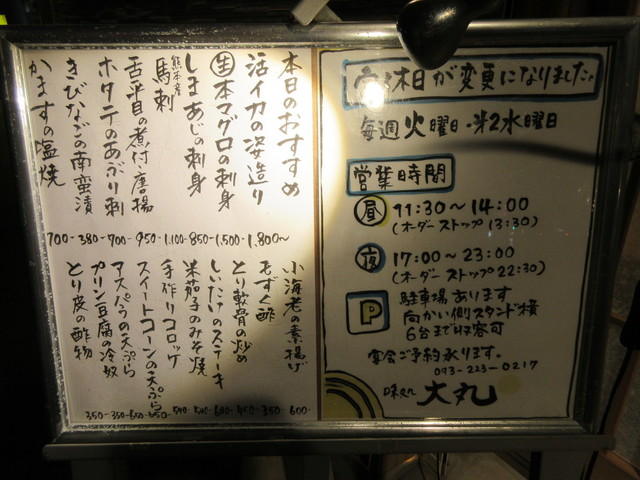 本日のおすすめ
活イカの姿造り 1,800〜
生本マグロの刺身 1,500-
しまあじの刺身 850-
熊本産 馬刺 1,100-
舌平目の煮付・唐揚 950-
ホタテのあぶり刺 700-
きびなごの南蛮漬 380-
かますの塩焼 700-
小海老の素揚げ 600-
もずく酢 350-
とり軟骨の炒め 450-
しいたけのステーキ 600-
米茄子のみそ焼
手作りコロッケ
スイートコーンの天ぷら 650-
アスパラの天ぷら 650-
豆腐の冷奴 350-
とり皮の酢物 350-
休日が変更になりました。
毎週火曜日・第2水曜日
営業時間
昼 11:30〜14:00
(オーダーストップ13:30)
夜 17:00〜23:00
(オーダーストップ22:30)
P 駐車場あります
向かい側スタンド横
6台まで収容可
宴会ご予約承ります。
093-223-0217
味処 大丸